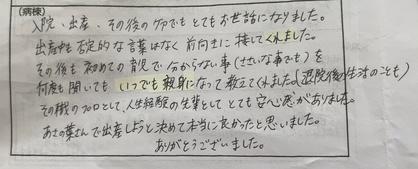 (病棟)
入院、出産、その後のケアもとてもお世話になりました。
出産中も否定的な言葉はなく前向きに接してくれました。
その後も初めての育児で分からない事(ささいな事でも)を
何度も聞いてもいつでも親身になって教えてくれました(退院後の生活のことも)
その職のプロとして、人生経験の先輩としてとても安心感がありました。
あさの葉さんで出産しようと決めて本当に良かったと思いました。
ありがとうございました。